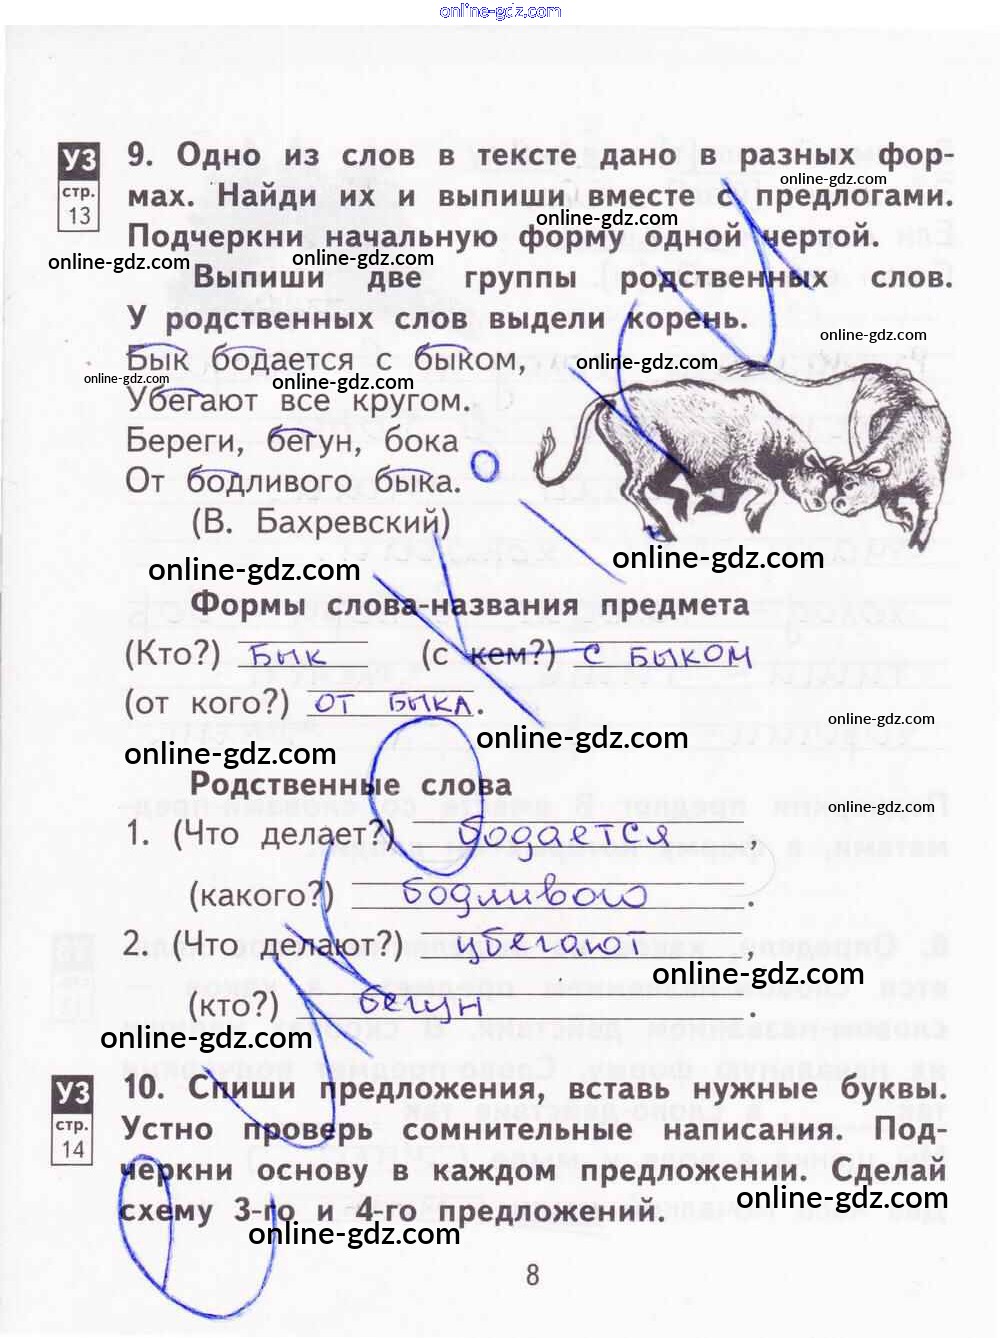 online-gdz.com
УЗ
стр.
13
9. Одно из слов в тексте дано в разных фор-
online-gdz.com
мах. Найди их и выпиши вместе с предлогами.
online-gdz.com
Подчеркни начальную форму одной чертой.
online-gdz.com
online-gdz.com
Выпиши две группы родственных слов.
У родственных слов выдели корень.
online-gdz.com
Бык бодается с быком,
online-gdz.com
online-gdz.com
online-gdz.com
Убегают все кругом.
Береги, бегун, бока
От бодливого быка.
(В. Бахревский)
online-gdz.com
online-gdz.com
Формы слова-названия предмета
(Кто?) бык (с кем?) с быком
(от кого?) от быка.
online-gdz.com
online-gdz.com
online-gdz.com
Родственные слова
online-gdz.com
1. (Что делает?) бодается,
(какого?) бодливого.
2. (Что делают?) убегают,
online-gdz.com
(кто?) бегун.
online-gdz.com
УЗ
стр.
14
10. Спиши предложения, вставь нужные буквы.
Устно проверь сомнительные написания. Под-
черкни основу в каждом предложении. Сделай
online-gdz.com
схему 3-го и 4-го предложений.
online-gdz.com
8